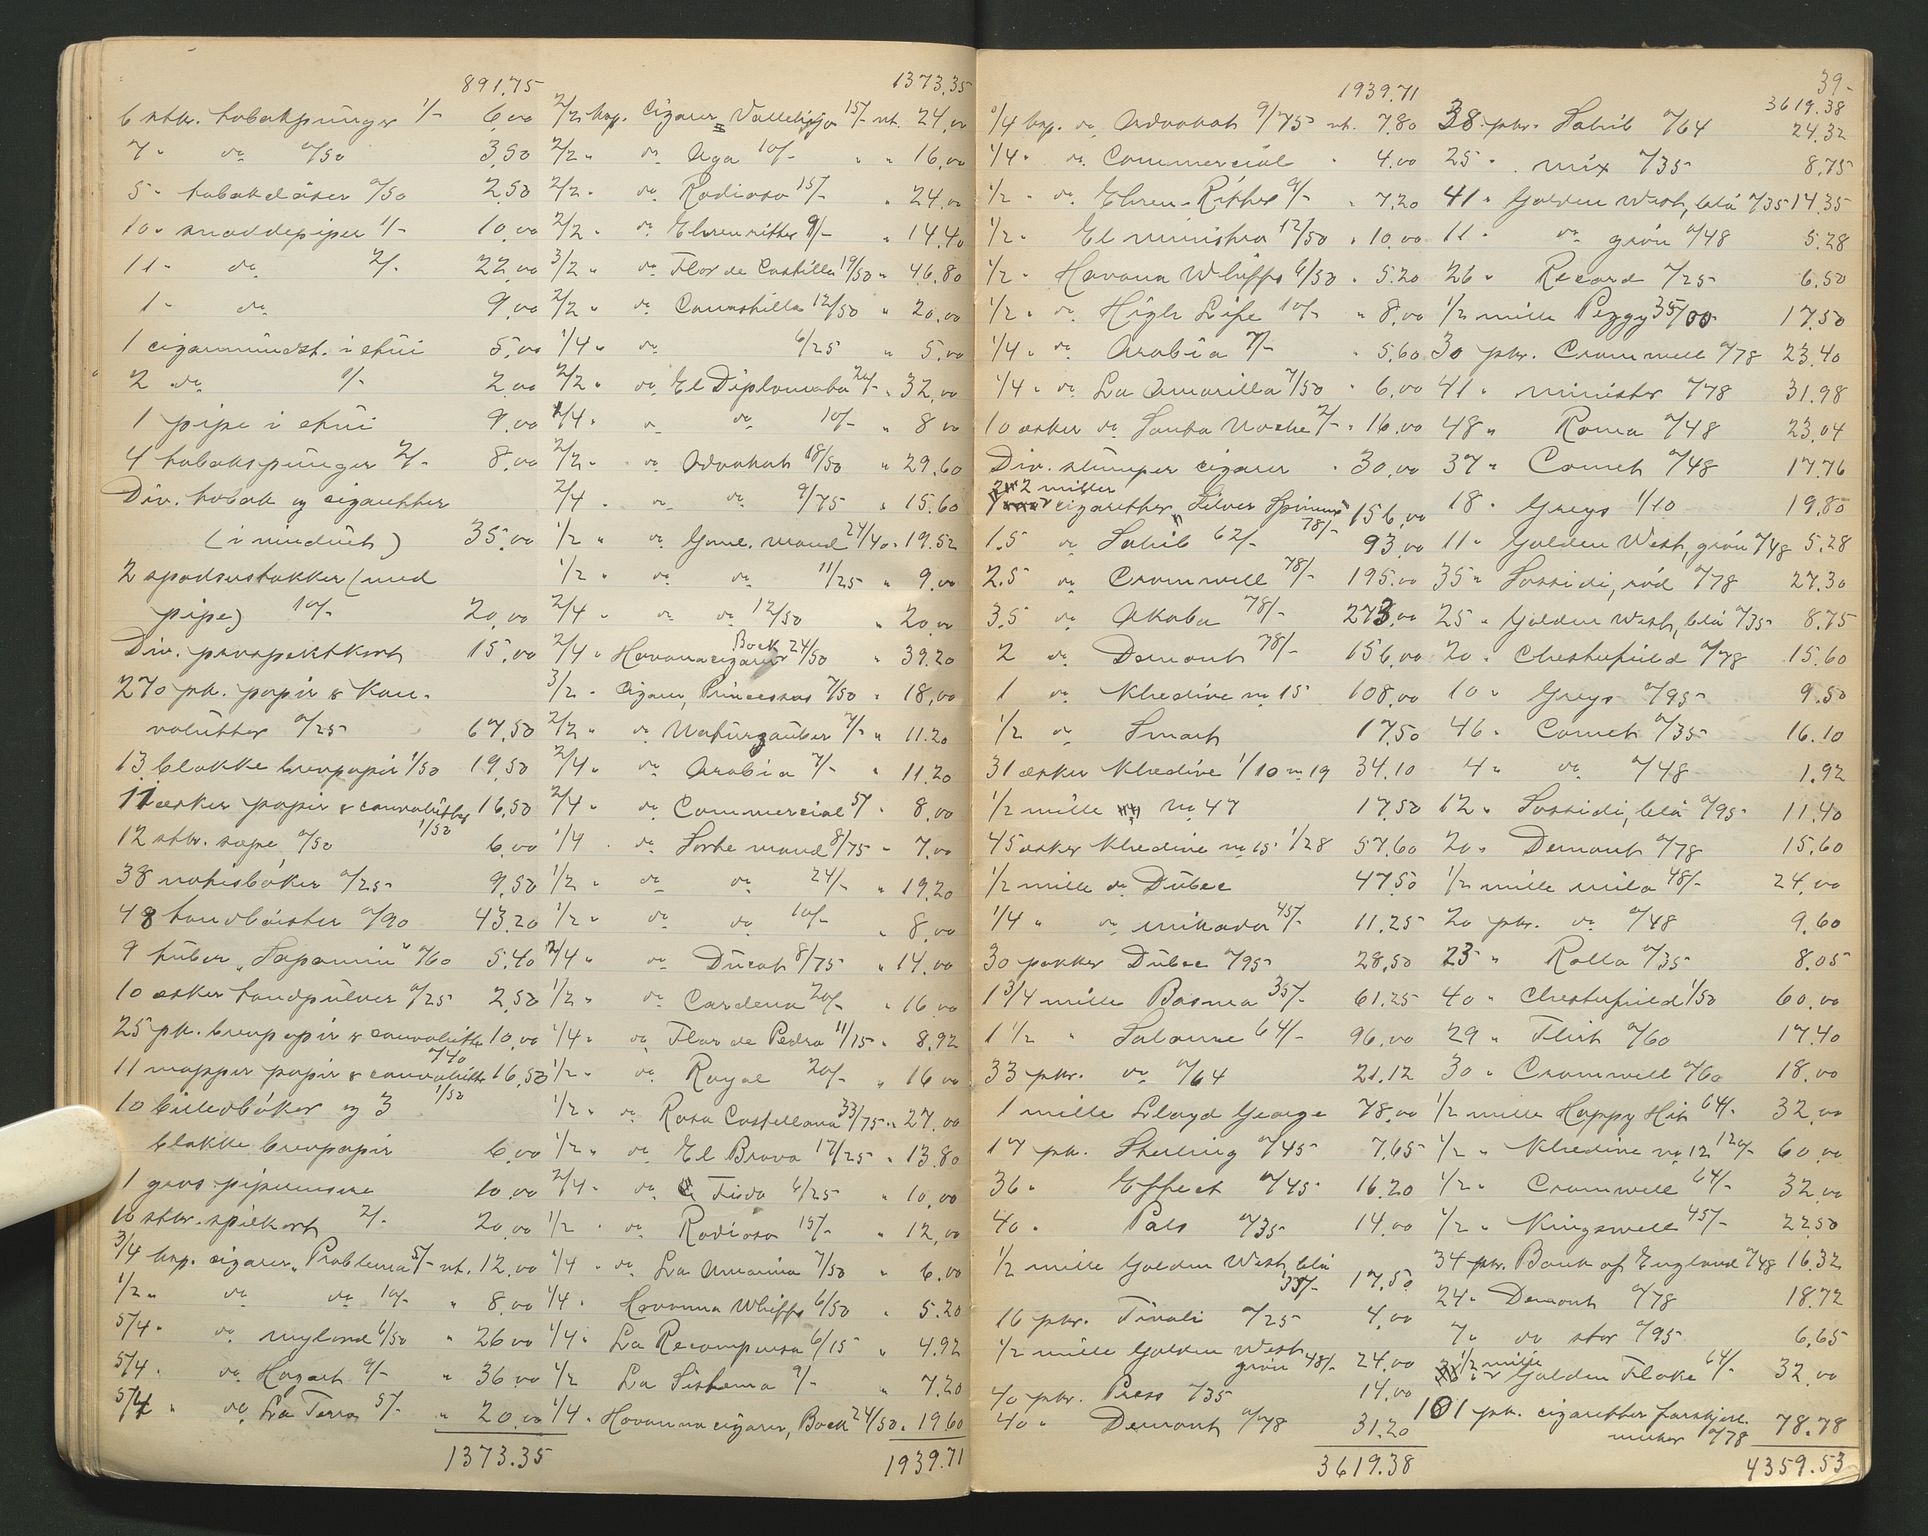 891.75
6 stkr. tobakspunger 1/- 6,00
7 " do a/50 3,50
5 " tobaksdåser a/50 2,50
10 " snaddepiper 1/- 10,00
11 " do 2/- 22,00
1 " do 9,00
1 cigarmundst. i etui 5,00
2 do 1/- 2,00
1 pipe i etui 9,00
4 tobakspunger 2/- 8,00
Div. tobak og cigaretter
(i vinduet) 35,00
2 spadserstokker (med
pipe) 10/- 20,00
Div. prospektkort 15,00
270 pk. papir & kon-
volutter a/25 67,50
13 blokke brevpapir 1/50 19,50
11 æsker papir & convolutter 1/50 16,50
12 stkr. sæpe a/50 6,00
38 notisbøker a/25 9,50
48 tandbørster a/90 43,20
9 tuber "Sapamin" a/60 5,40
10 æsker tandpulver a/25 2,50
25 pk. brevpapir & convolutter a/40 10,00
11 mapper papir & convolutter 1/50 16,50
10 billedbøker og 3
blokke brevpapir 6,00
1 gros piperensere 10,00
10 stkr. spilkort 2/- 20,00
3/4 kap. cigarer "Problema" 5/- nt. 12,00
1/2 " do do 10/- " 8,00
5/4 " do Nylond 6/50 " 26,00
5/4 " do Hazart 9/- " 36,00
5/4 " do La Terra 5/- " 20,00
1373.35
1373.35
2/2 kap. cigarer Vallehejja 15/- nt. 24,00
2/2 " do Aga 10/- " " 16,00
2/2 " do Radioso 15/- " 24,00
2/2 " do Ehrenritter 9/- " 14.40
3/2 " do Flor de Castilla 19/50 " 46.80
2/2 " do Camastilla 12/50 " 20,00
1/4 " do 6/25 " 5,00
2/2 " do El Diplomata 20/- " 32,00
1/4 " " do 10/- " 8,00
2/2 " do Advokat 18/50 " 29.60
2/4 " " do 9/75 " 15.60
1/2 " do Gml. mand 24/40 " 19.52
1/2 " do do 11/25 " 9,00
2/4 " do do 12/50 " 20,00
2/4 " Havanacigarer Bock 24/50 " 39.20
3/2 " cigarer, Princessas 7/50 " 18,00
2/2 " do Naturzauber 7/- " 11.20
2/4 " do Arabia 7/- " 11.20
2/4 " do Commercial 5/- " 8,00
1/4 " do Sorte mand 8/75 " 7,00
1/2 " do do 24/- " 19,20
1/2 " do do 10/- " 8,00
2/4 " do Ducat 8/75 " 14,00
1/2 " do Cardena 20/- " 16,00
1/4 " do Flor de Pedro 11/15 " 8.92
1/2 " do Royal 20/- " 16,00
1/2 " do Rosa Castellana 33/75 " 27,00
1/2 " do El Bravo 17/25 " 13.80
2/4 " do Tisdo 6/25 " 10,00
1/2 " do Radioso 15/- " 12,00
1/4 " do La Amarina 7/50 " 6,00
1/4 " Havanna Whiffs 6/50 " 5.20
1/4 " La Recompensa 6/15 " 4.92
1/2 La Sistema 9/- " 7.20
1/4 " Havannacigarer, Bock 24/50 " 19.60
1939.71
1939.71
1/4 kap. do Advokat 9/75 nt. 7.80
1/4 " do Commercial " 4.00
1/2 " do Ehren-Ritter 9/- " 7.20
1/2 " El Ministro 12/50 " 10,00
1/2 " Havana Whiffs 6/50 " 5.20
1/2 " do High Life 10/- " 8,00
1/4 " do Arabia 7/- " 5.60
1/4 " do La Amarilla 7/50 " 6,00
10 æsker do Santa Noche 2/- " 16,00
Div. stumper cigarer " 30,00
2 miller
cigaretter "Silver Spinner" 78/- 156,00
1.5 do Sahib 62/- 93,00
2.5 do Cromwell 78/- 195,00
3.5 do Akaba 78/- 273,00
2 do Demant 78/- 156,00
1 do Khedive no 15 108,00
1/2 do Smart 17,50
31 æsker Khedive 1/10 no 19 34.10
1/2 mille No 47 17,50
45 æsker Khedive no 15 1/28 57.60
1/2 mille do Dubec 47,50
1/4 " do Mikador 45/- 11.25
30 pakker Dubec a/95 28,50
1 3/4 mille Basma 35/- 61.25
1 1/2 " Salome 64/- 96,00
33 pkr. do a/64 21.12
1 mille Lloyd George 78,00
17 pk. Sterling a/45 7,65
36 " Effect a/45 16.20
40 " Pals a/35 14,00
1/2 mille Golden West, blå
35/- 17,50
16 pkr. Tivoli a/25 4,00
1/2 mille Golden West
grøn 48/- 24,00
40 pkr. Press a/35 14,00
40 " Demant a/78 31.20
3619.38
39-
3619.38
38 pkr. Sahib a/64 24.32
25 " Mix a/35 8.75
41 " Golden West, blå a/35 14.35
11 " do grøn a/48 5.28
26 " Record a/25 6.50
1/2 mille Peggy 35/00 17.50
30 pkr. Cromwell a/78 23.40
41 " Minister a/78 31.98
48 " Roma a/48 23.04
37 " Comet a/48 17.76
18 " Greys 1/10 19.80
11 " Golden West, grøn a/48 5.28
35 " Sossidi, rød a/78 27.30
25 " Golden West, blå a/35 8.75
20 " Chesterfield a/78 15.60
10 " Greys a/95 9.50
46 " Comet a/35 16.10
4 " do a/48 1.92
12 " Sossidi, blå a/95 11.40
20 " Demant a/78 15.60
1/2 mille Mila 48/- 24,00
20 pkr. do a/48 9.60
23 " Rolla a/35 8.05
40 " Chesterfield 1/50 60,00
29 " Flirt a/60 17.40
30 " Cromwell a/60 18.00
1/2 mille Happy Hit 64/- 32,00
1/2 " Khedive no 12 120/- 60,00
1/2 " Cromwell 64/- 32,00
1/2 " Kingswell 45/- 22,50
34 pkr. Bank of England a/48 16.32
24 " Demant a/78 18.72
7 " do stor a/95 6.65
1/2 mille
Golden Flake 64/- 32,00
101 pk. cigaretter forskjell.
merker a/78 78.78
4359.53